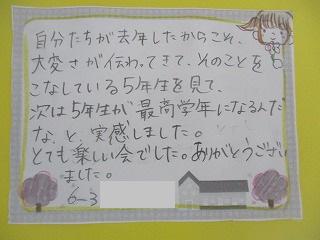 自分たちが去年したからこそ、
大変さが伝わってきて、そのことを
こなしている5年生を見て、
次は5年生が最高学年になるんだ
な、と、実感しました。
とても楽しい会でした。ありがとうござい
ました。
6-3